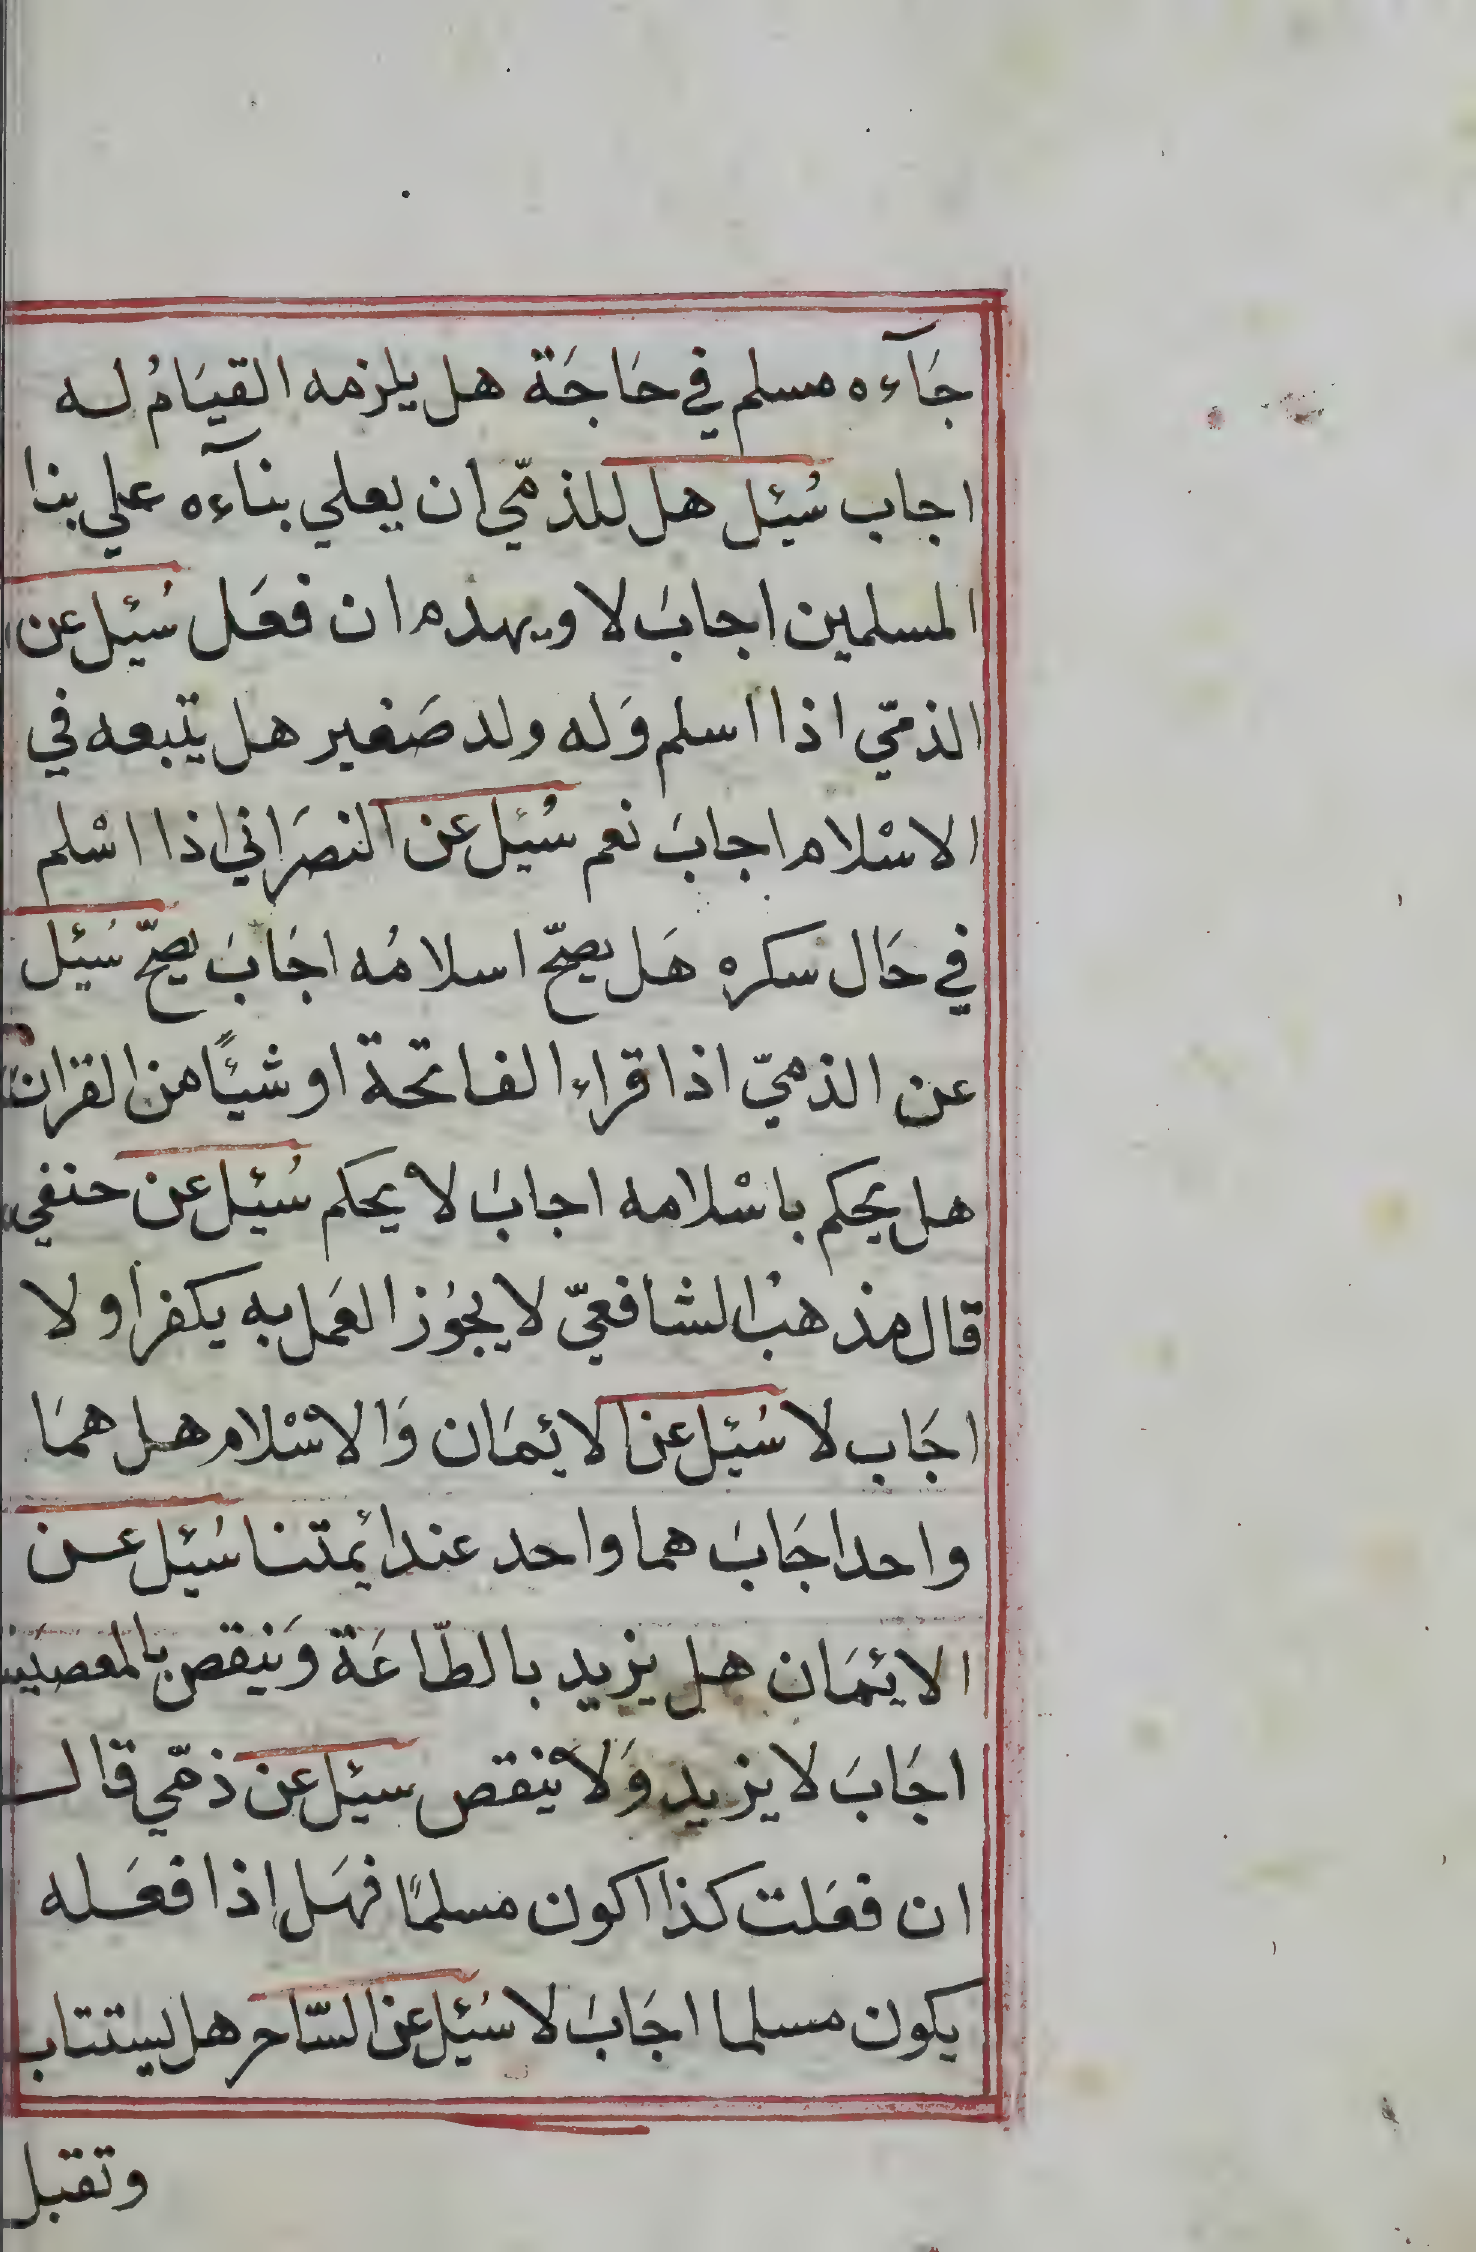 جَآءه مسلم في حَاجَة هل يلزمه القيَامُ له
اجاب سُئِل هل للذمّي ان يعلي بنآءه علي بنا
المسلمين اجابَ لا ويهدم ان فعَل سُئِل عن
الذمّي اذا اسلم وَله ولد صَغير هل يتبعه في
الاسْلام اجابَ نعم سُئِل عن النصرَاني اذا اسْلم
في حَال سكره هَل يصحّ اسلامُه اجَابَ يصحّ سُئِل
عن الذميّ اذا قراء الفاتحة او شيئًا من القران
هل يحكم باسْلامه اجابَ لا يحكم سُئِل عن حنفي
قال مذهبُ الشافعيّ لا يجوُز العَمل به يكفر او لا
اجَاب لا سُئِل عن الايمَان وَالاسْلام هل همَا
واحد اجَابَ هما واحد عند ائمتنا سُئِل عن
الايمَان هل يزيد بالطّاعَة وَينقص بالمعصية
اجَابَ لا يزيد وَلا ينقص سيئل عن ذمّي قال
ان فعَلت كذا اكون مسلمًا فهَل اذا فعَله
يكون مسلما اجَابَ لا سُئِل عن السّاحر هل يستتاب
وتقبل